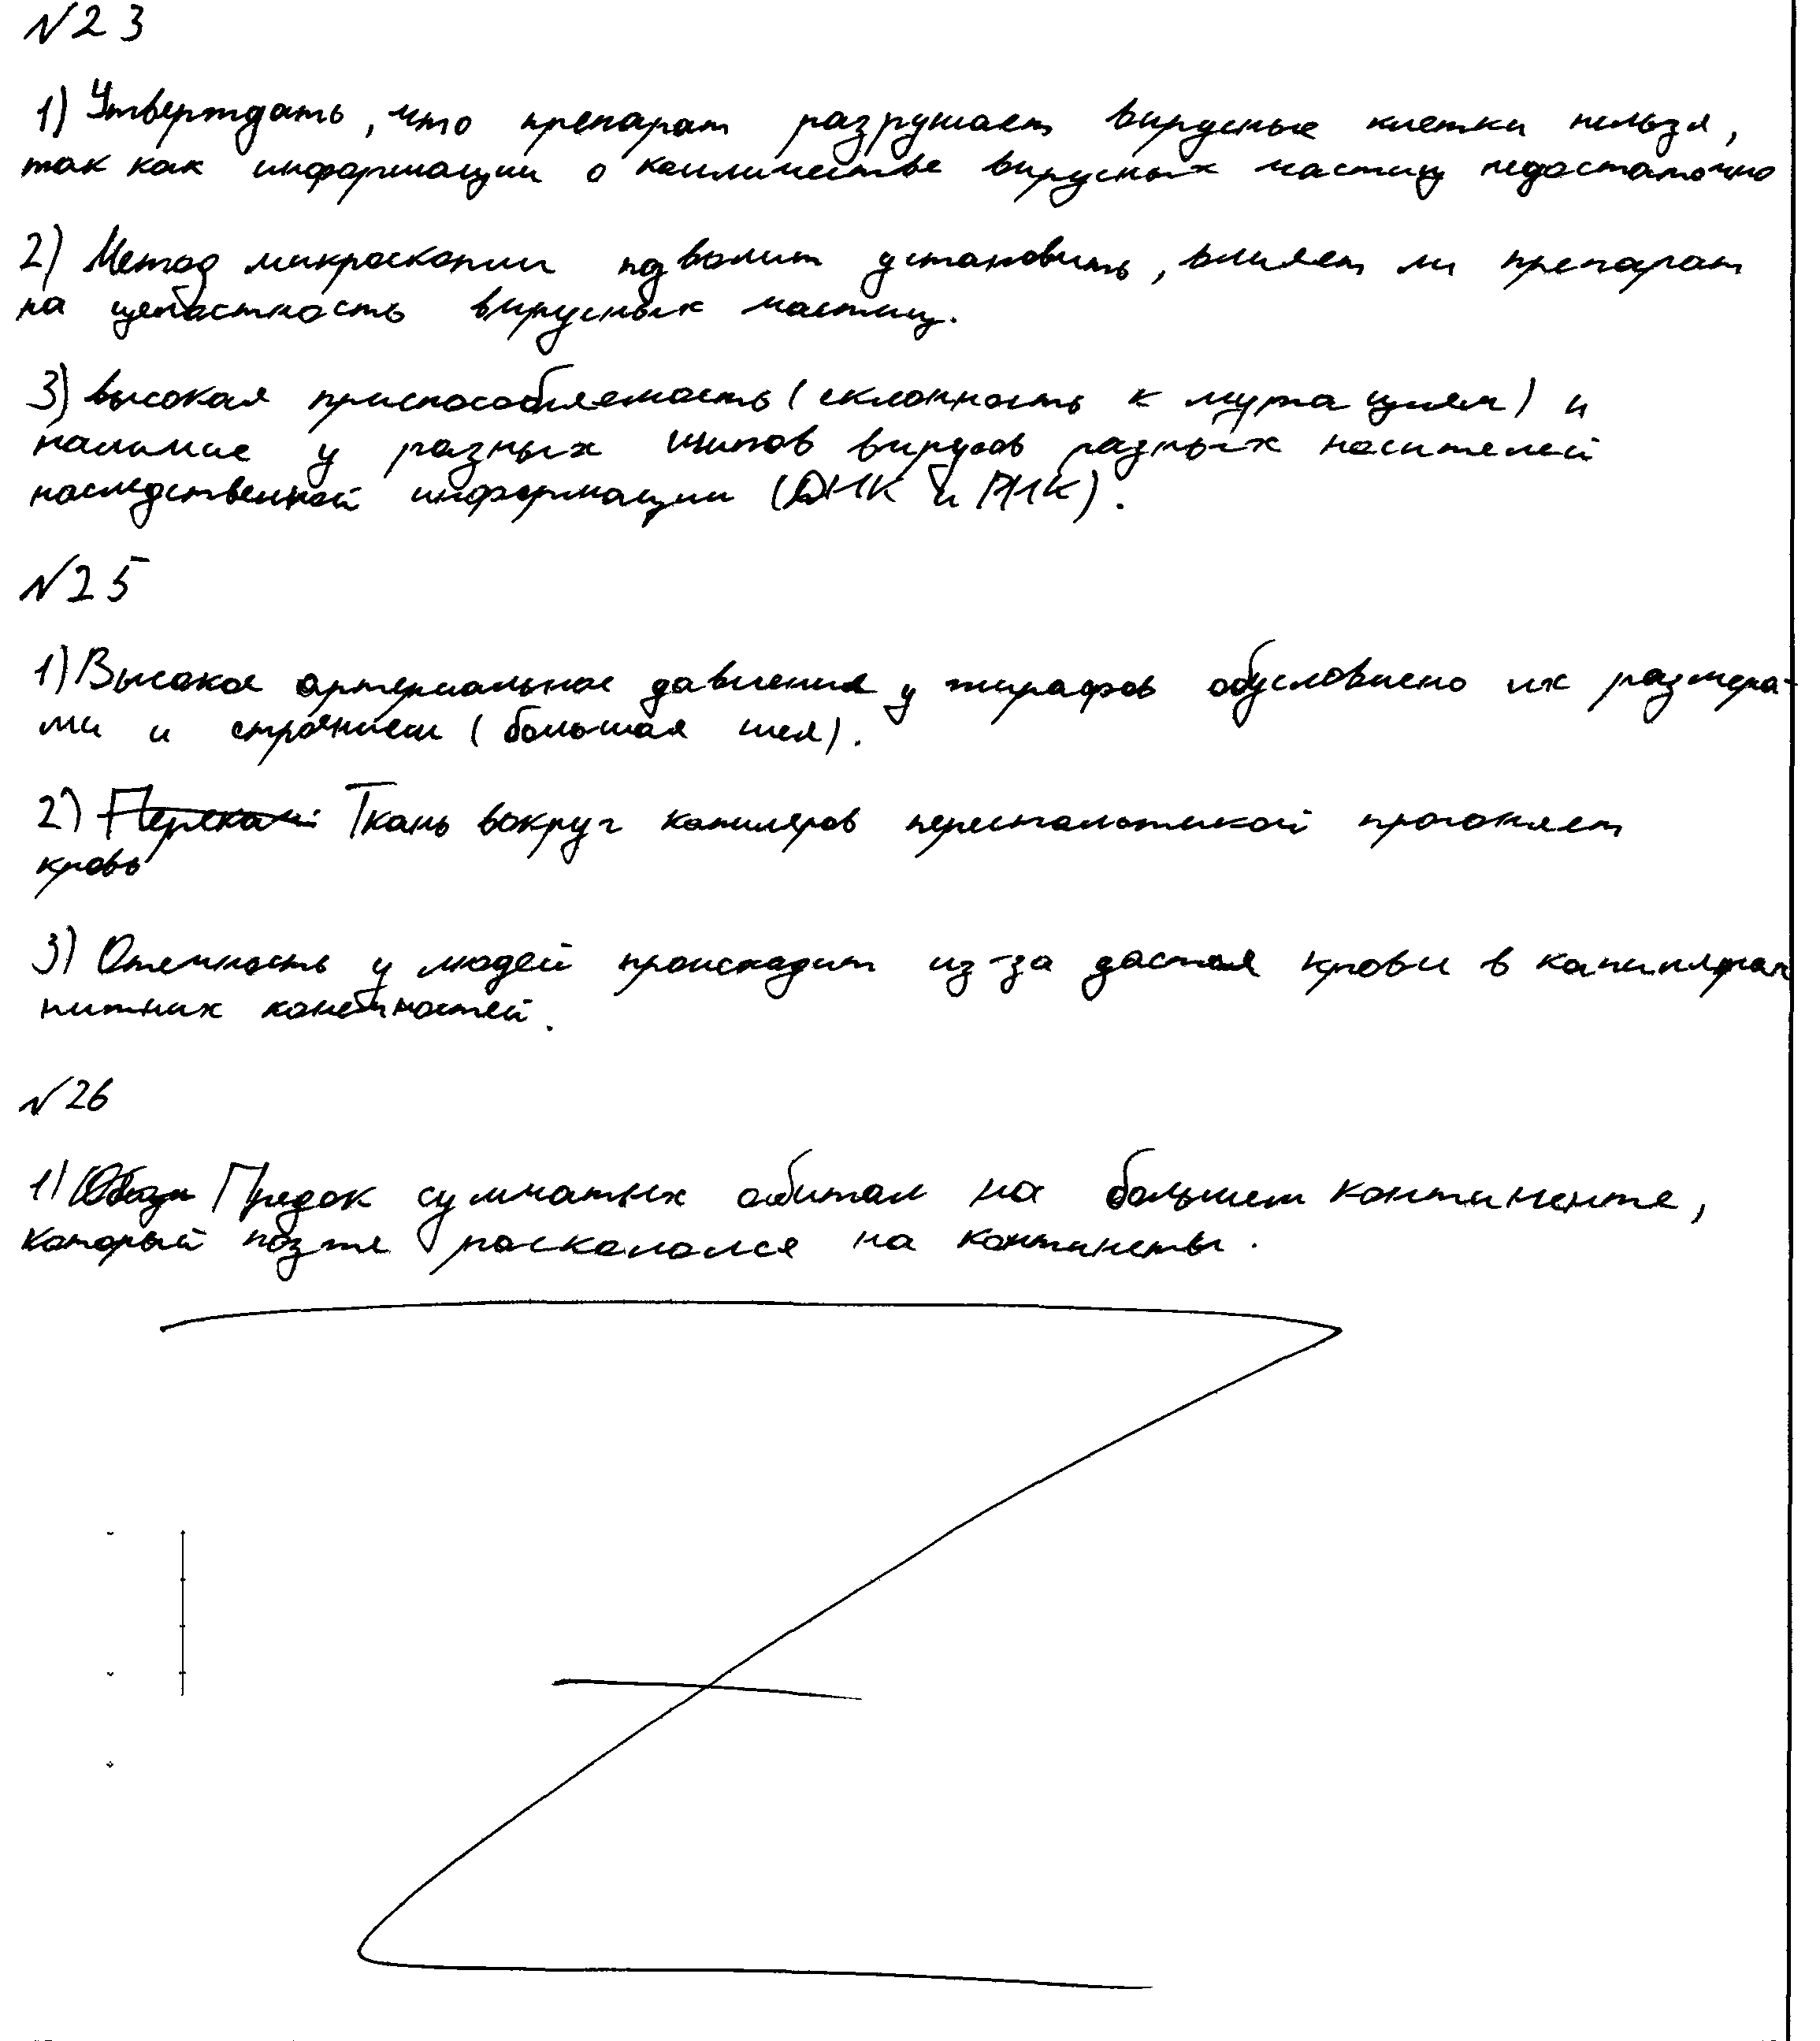 №23
1) Утверждать, что препарат разрушает вирусные клетки нельзя,
так как информации о количестве вирусных частиц недостаточно
2) Метод микроскопии позволит установить, влияет ли препарат
на целостность вирусных частиц.
3) высокая приспособляемость (склонность к мутациям) и
наличие у разных типов вирусов разных носителей
наследственной информации (ДНК и РНК).
№25
1) Высокое артериальное давление у жирафов обусловлено их размера-
ми и строением (большая шея).
2) Ткань вокруг капиляров перистальтикой прогоняет
кровь
3) Отечность у людей происходит из-за застоя крови в капиллярах
нижних конечностей.
№26
1) Предок сумчатых обитал на большем континенте,
который позже раскололся на континеты.